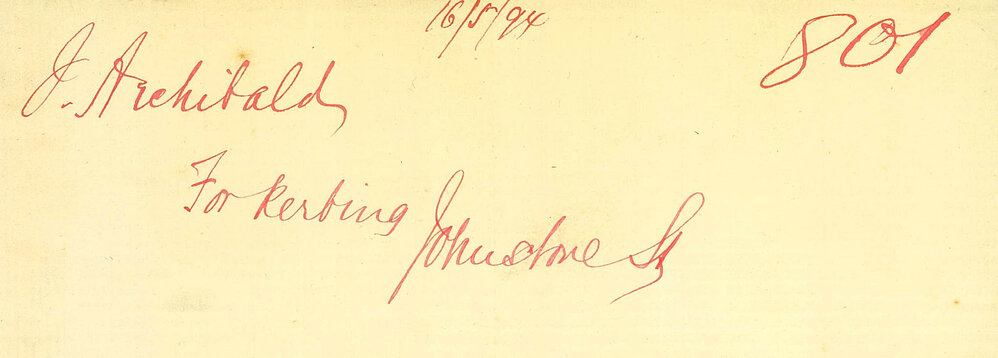 16/5/94
801
J. Archibald
For kerbing Johnstone St